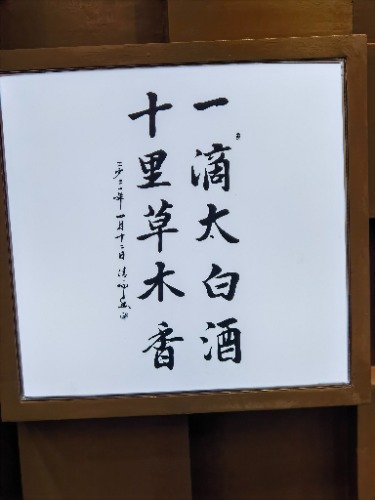 一滴太白酒
十里草木香
二零二一年四月十二日